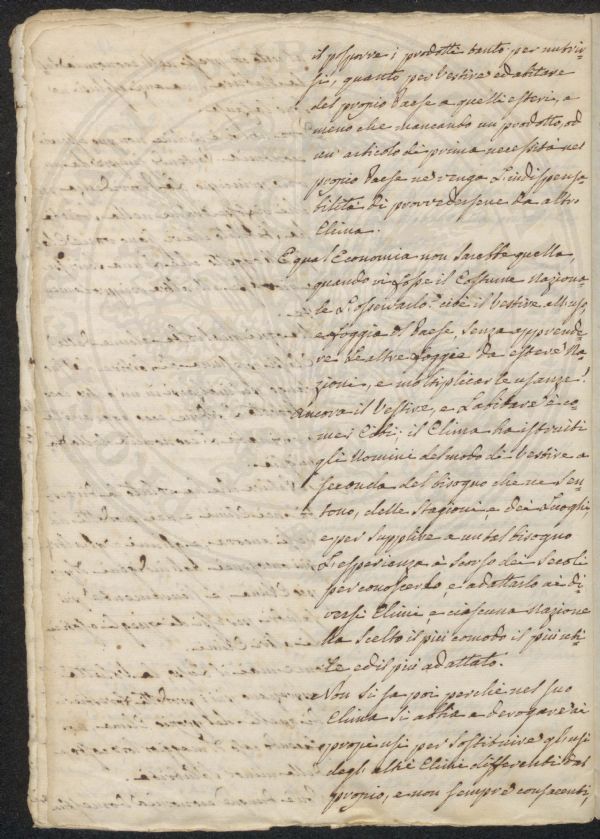 il posporre i prodotti tanto per nutrir-
si, quanto per Vestire ed abitare
del propio Paese a quelli esteri, a
meno che mancando un prodotto, od
un articolo di prima necessità nel
propio Paese ne venga L'indispensa-
bilità di provvedersene da altro
Clima.
E qual Economia non sarebbe quella,
quando vi fosse il Costume Naziona-
le L'osservarlo? cioè il Vestire all'uso,
e foggia del Paese, senza apprende-
re le altre foggie da estere Na-
zioni, e moltiplicar le usanze!
Ancora il Vestire, e L'abitare è co-
me i Cibi; il Clima ha istruiti
gli Uomini del modo di Vestire a
seconda del bisogno che ne sen-
tono, delle Stagioni, e dei Luoghi,
e per supplire a un tal bisogno
L'esperienza à scorso dei Secoli
per conoscerlo, e adottarlo ai di-
versi Climi, e ciascuna Nazione
ha scelto il più comodo il più uti-
le ed il più adattato.
Non si sa poi perchè nel suo
Clima si abbia a derogare ai
propi usi per sostituire gl'usi
degli altri Climi differenti dal
proprio, e non sempre confacenti,